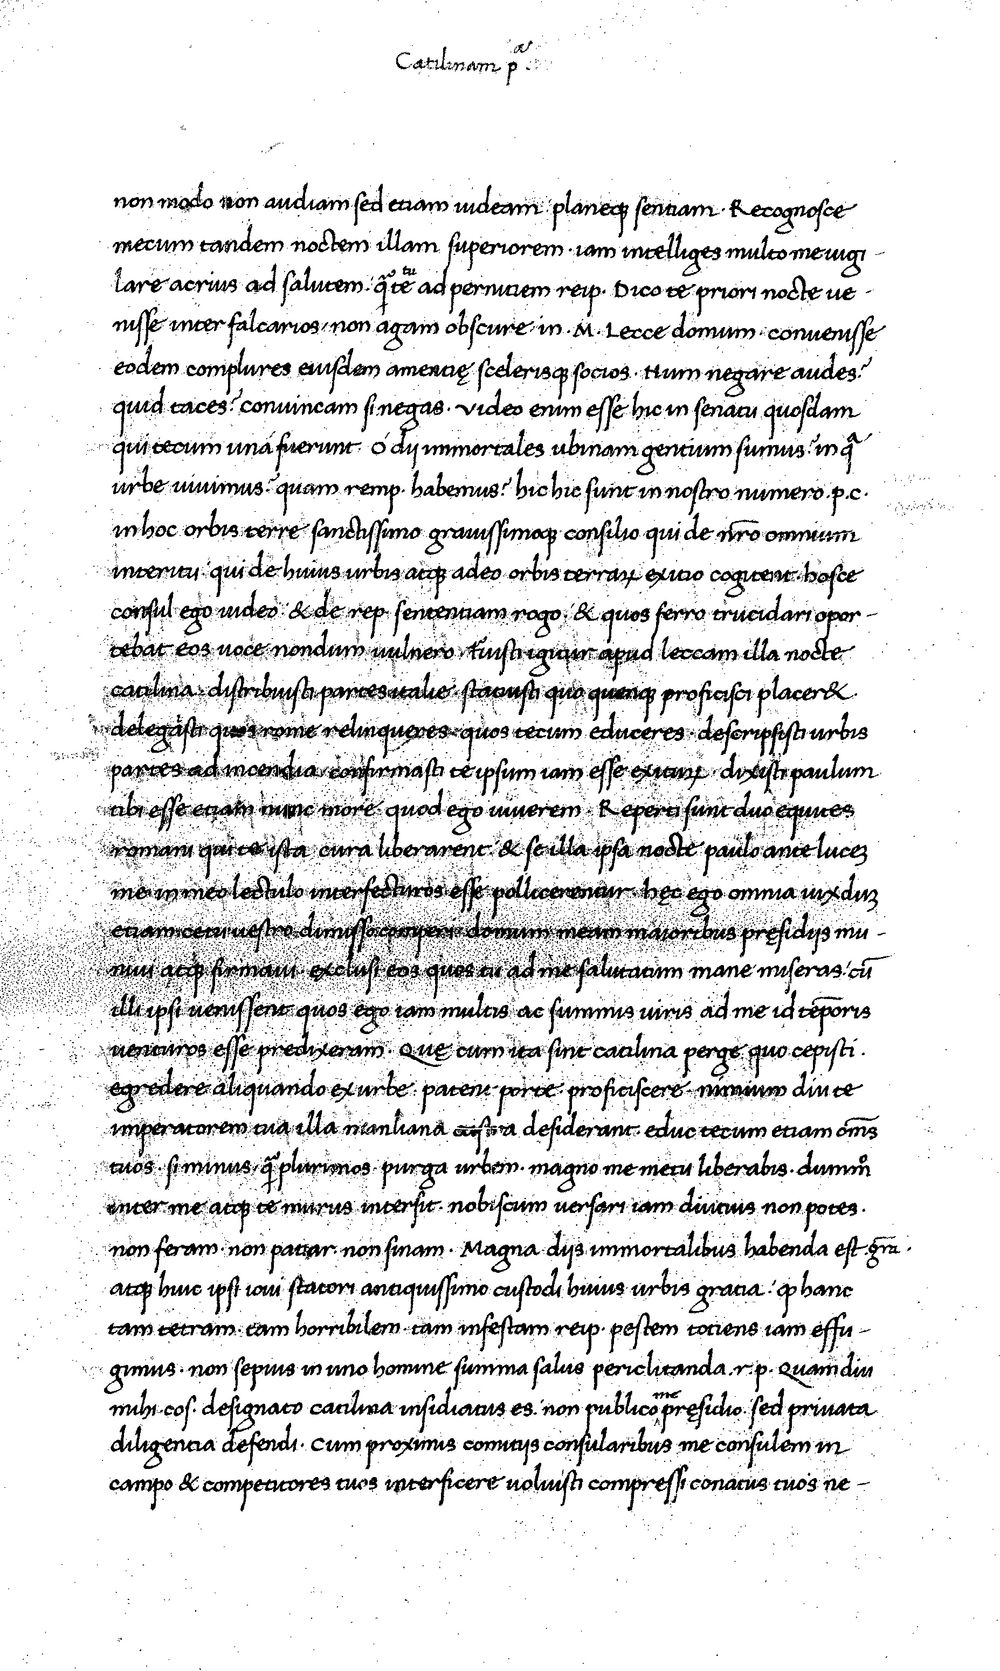 Catilinam pa
non modo non audiam sed etiam uideam planeq; sentiam. Recognosce
mecum tandem noctem illam superiorem. iam intelliges multo me uigi-
lare acrius ad salutem. q̃ te tu ad pernitiem reip. Dico te priori nocte ue-
nisse inter falcarios, non agam obscure in. M. Lecce domum. conuenisse
eodem complures eiusdem amentię scelerisq; socios. Num negare audes?
quid taces? conuincam si negas. Video enim esse hic in senatu quosdam
qui tecum una fuerunt. O dij immortales ubinam gentium sumus? in q̃
urbe uiuimus? quam remp. habemus? hic hic sunt in nostro numero .p.c.
in hoc orbis terre sanctissimo grauissimoq; consilio qui de nr̃o omnium
interitu qui de huius urbis atq; adeo orbis terraꝝ exitio cogitent. hosce
consul ego uideo & de rep. sententiam rogo. & quos ferro trucidari opor-
tebat eos uoce nondum uulnero. Fuisti igitur apud leccam illa nocte
catilina. distribuisti partes italie. statuisti quo quenq; proficisci placer&.
delegasti quos rome relinqueres. quos tecum educeres. descripsisti urbis
partes ad incendia, confirmasti te ipsum iam esse exituꝝ. dixisti paulum
tibi esse etiam nunc more. quod ego uiuerem. Reperti sunt duo equites
romani qui te ista cura liberarent. & se illa ipsa nocte paulo ante lucez
me in meo lectulo interfecturos esse pollicerentur. hęc ego omnia uixduz
etiam cetu uestro dimisso comperi. domum meam maioribus pręsidijs mu-
niui atq; firmaui. exclusi eos quos tu ad me salutatum mane miseras. cũ
illi ipsi uenissent quos ego iam multis ac summis uiris ad me id tep̃oris
uenturos esse predixeram. Quę cum ita sint catilina perge quo cepisti.
egredere aliquando ex urbe. patent porte. proficiscere. nimium diu te
imperatorem tua illa manliana castra desiderant. educ tecum etiam om̃s
tuos. si minus, q̃ plurimos. purga urbem. magno me metu liberabis. dummo
inter me atq; te murus intersit. nobiscum uersari iam diutius non potes.
non feram. non patiar. non sinam. Magna dijs immortalibus habenda est gr̃a.
atq; huic ipsi ioui statori antiquissimo custodi huius urbis gratia. ꝙ hanc
tam tetram. tam horribilem. tam infestam reip. pestem totiens iam effu-
gimus. non sepius in uno homine summa salus periclitanda .r.p. Quamdiu
mihi cos. designato catilina insidiatus es. non publico me pręsidio. sed priuata
diligentia defendi. Cum proximis comitijs consularibus me consulem in
campo & competitores tuos interficere uoluisti compressi conatus tuos ne-